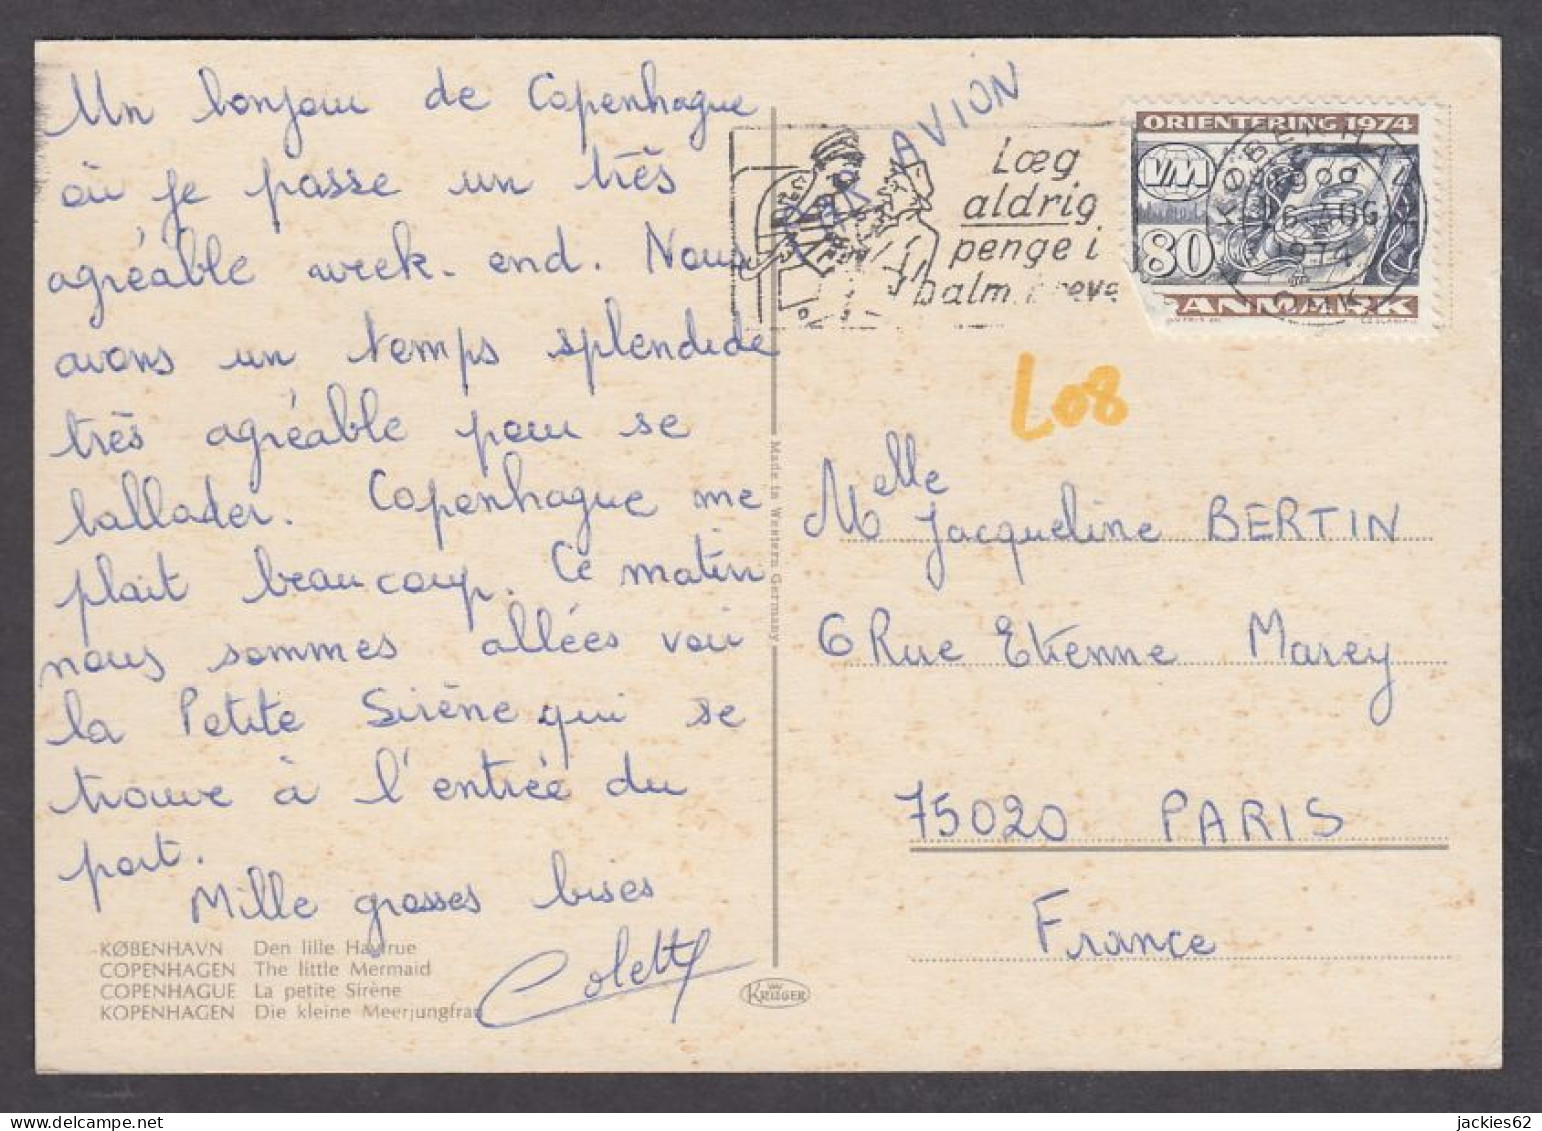 Un bonjour de Copenhague
où je passe un très
agréable week-end. Nous
avons un temps splendide
très agréable pour se
ballader. Copenhague me
plait beaucoup. Ce matin
nous sommes allées voir
la Petite Sirène qui se
trouve à l'entrée du
port.
Mille grosses bises
Colette
KØBENHAVN Den lille Havfrue
COPENHAGEN The little Mermaid
COPENHAGUE La petite Sirène
KOPENHAGEN Die kleine Meerjungfrau
Made in Western Germany
KRÜGER
PAR AVION
Læg
aldrig
penge i
alm. breve
ORIENTERING 1974
VM
80
DANMARK
AUG
1974
L08
Melle Jacqueline BERTIN
6 Rue Etienne Marey
75020 PARIS
France
jackies62